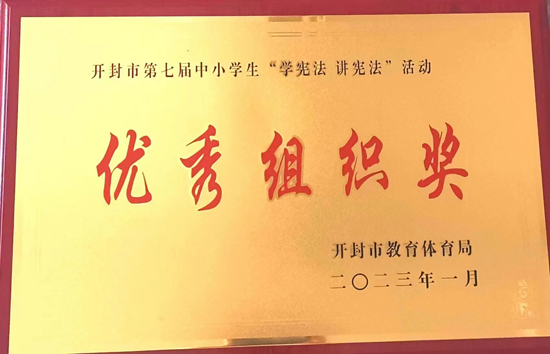 开封市第七届中小学生“学宪法 讲宪法”活动
优秀组织奖
开封市教育体育局
二〇二三年一月